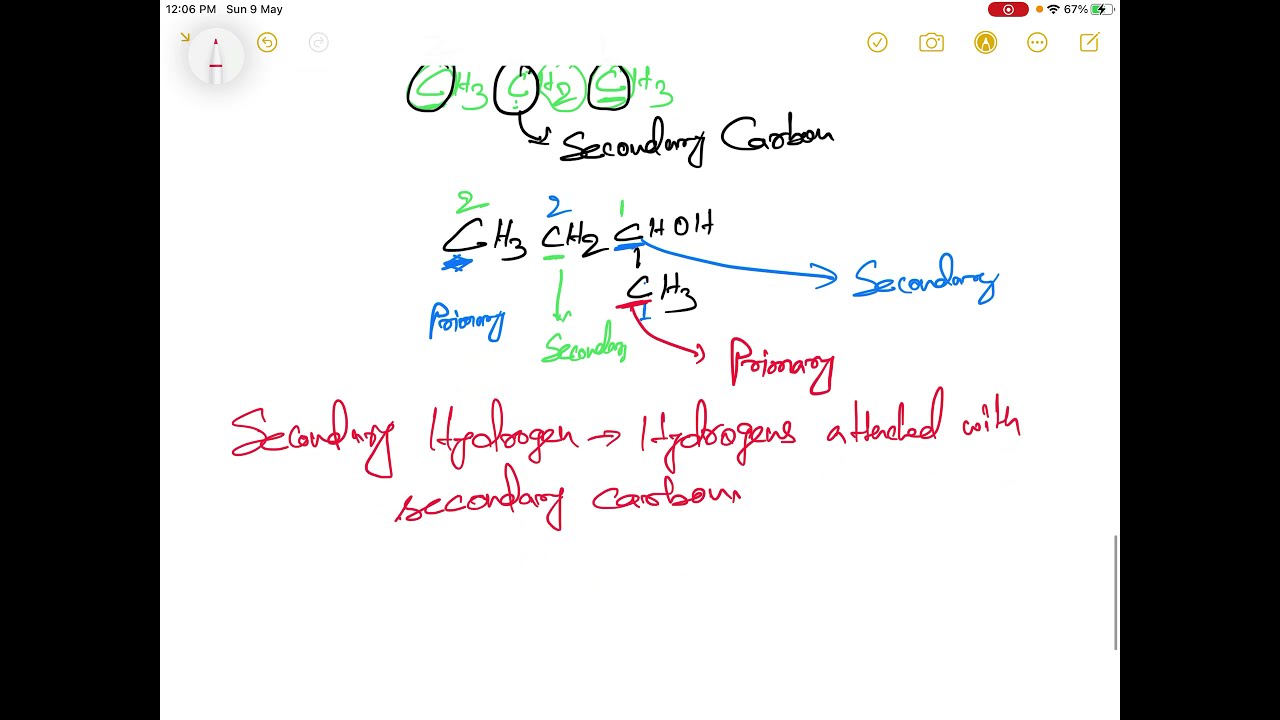 12:06 PM Sun 9 May 67%
CH3 CH2 CH3
Secondary Carbon
2 2 1
CH3 CH2 CHOH
Secondary
CH3
1
Primary
Secondary
Primary
Secondary Hydrogen → Hydrogens attached with
secondary carbon